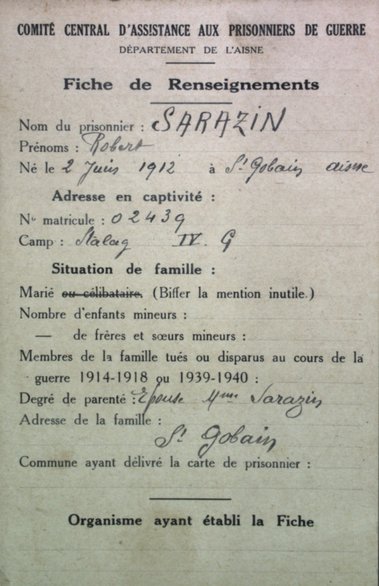 COMITÉ CENTRAL D'ASSISTANCE AUX PRISONNIERS DE GUERRE
DÉPARTEMENT DE L'AISNE
Fiche de Renseignements
Nom du prisonnier : SARAZIN
Prénoms : Robert
Né le 2 Juin 1912 à St Gobain aisne
Adresse en captivité :
No matricule : 02439
Camp : Stalag IV. G
Situation de famille :
Marié ou célibataire. (Biffer la mention inutile.)
Nombre d'enfants mineurs :
— de frères et sœurs mineurs :
Membres de la famille tués ou disparus au cours de la
guerre 1914-1918 ou 1939-1940 :
Degré de parenté : Epouse Mme Sarazin
Adresse de la famille :
St Gobain
Commune ayant délivré la carte de prisonnier :
Organisme ayant établi la Fiche